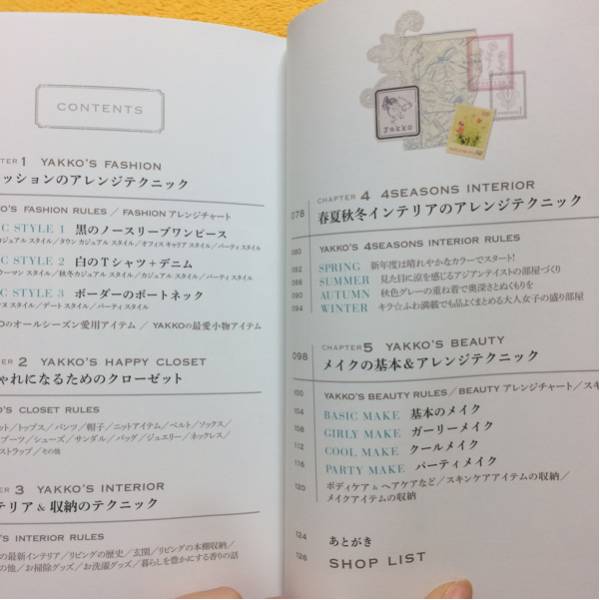 CONTENTS
1 YAKKO'S FASHION
ッションのアレンジテクニック
O'S FASHION RULES / FASHION アレンジチャート
C STYLE 1 黒のノースリーブワンピース
カジュアル スタイル／タウン カジュアル スタイル／オフィス キャリア スタイル／パーティ スタイル
C STYLE 2 白のTシャツ＋デニム
ウーマン スタイル／秋冬カジュアル スタイル／カジュアル スタイル／パーティ スタイル
C STYLE 3 ボーダーのボートネック
ヌ スタイル／デート スタイル／パーティ スタイル
Oのオールシーズン愛用アイテム / YAKKOの最愛小物アイテム
2 YAKKO'S HAPPY CLOSET
ゃれになるためのクローゼット
O'S CLOSET RULES
ット／トップス／パンツ／帽子／ニットアイテム／ベルト／ソックス／
ブーツ／シューズ／サンダル／バッグ／ジュエリー／ネックレス／
ストラップ／その他
3 YAKKO'S INTERIOR
テリア＆収納のテクニック
O'S INTERIOR RULES
の最新インテリア／リビングの歴史／玄関／リビングの本棚収納／
の他／お掃除グッズ／お洗濯グッズ／暮らしを豊かにする香りの話
yakko
078 CHAPTER 4 4SEASONS INTERIOR
春夏秋冬インテリアのアレンジテクニック
080 YAKKO'S 4SEASONS INTERIOR RULES
SPRING 新年度は晴れやかなカラーでスタート!
SUMMER 見た目に涼を感じるアジアンテイストの部屋づくり
AUTUMN 秋色グレーの重ね着で奥深さとぬくもりを
094 WINTER キラ☆ふわ満載でも品よくまとめる大人女子の盛り部屋
098 CHAPTER 5 YAKKO'S BEAUTY
メイクの基本＆アレンジテクニック
100 YAKKO'S BEAUTY RULES／BEAUTY アレンジチャート／スキ
104 BASIC MAKE 基本のメイク
108 GIRLY MAKE ガーリーメイク
112 COOL MAKE クールメイク
116 PARTY MAKE パーティメイク
120 ボディケア＆ヘアケアなど／スキンケアアイテムの収納／
メイクアイテムの収納
124 あとがき
126 SHOP LIST